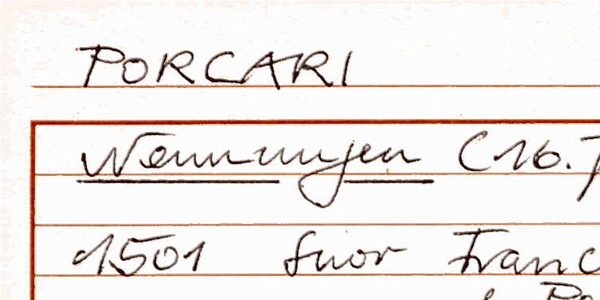 PORCARI
Nennungen (16.
1501 Suor Franc